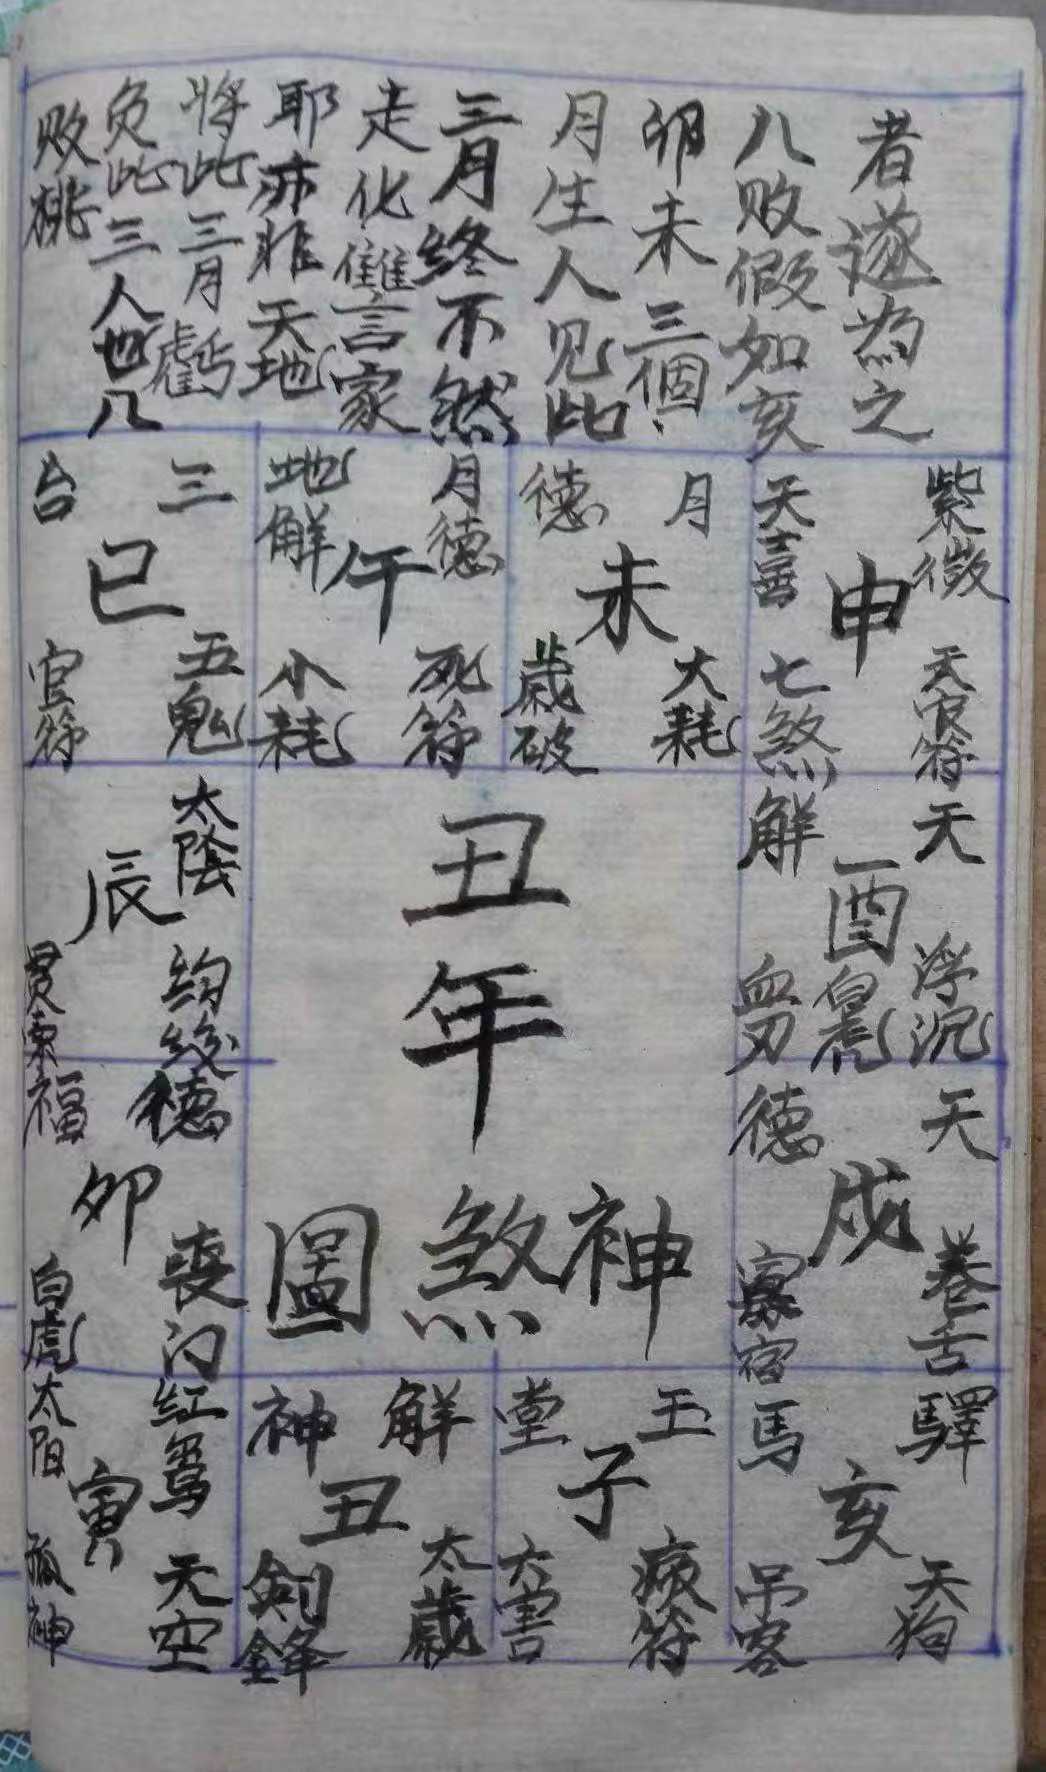 者遂為之
八败假如亥
卯未三個
月生人见此
三月終不然
走化雠言家
耶亦非天地
將此三月虧
负此三人也八
败桃
紫微
天喜
申
天官符
七煞
月德
未
大耗
歲破
月德
地解
午
死符
小耗
三台
巳
五鬼
官符
天解
酉
浮沉
白虎
血刃
太陰
辰
勾绞
贯索
天德
戌
卷舌
寡宿
福德
卯
丧门
白虎
丑年
神煞圖
驛馬
亥
天狗
吊客
玉堂
子
病符
六害
解神
丑
太歲
剑鋒
红鸾
太阳
寅
天空
孤神